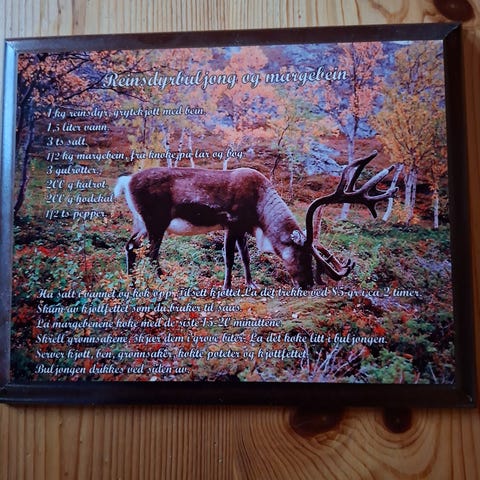 Reinsdyrbuljong og margebein
1 kg reinsdyr, grytekjøtt med bein.
1,5 liter vann.
3 ts salt.
1/2 kg margebein, fra knoke, pa lår og bog.
3 gulrøtter.
200 g kålrot.
200 g hodekål.
1/2 ts pepper.
Ha salt i vannet og kok opp. Tilsett kjøttet. La det trekke ved 85 gr i ca 2 timer.
Skum av kjøttfettet som du bruker til saus.
La margebenene koke med de siste 15-20 minuttene.
Skrell grønnsakene, skjær dem i grove biter. La det koke litt i buljongen.
Server kjøtt, ben, grønnsaker, kokte poteter og kjøttfettet.
Buljongen drikkes ved siden av.